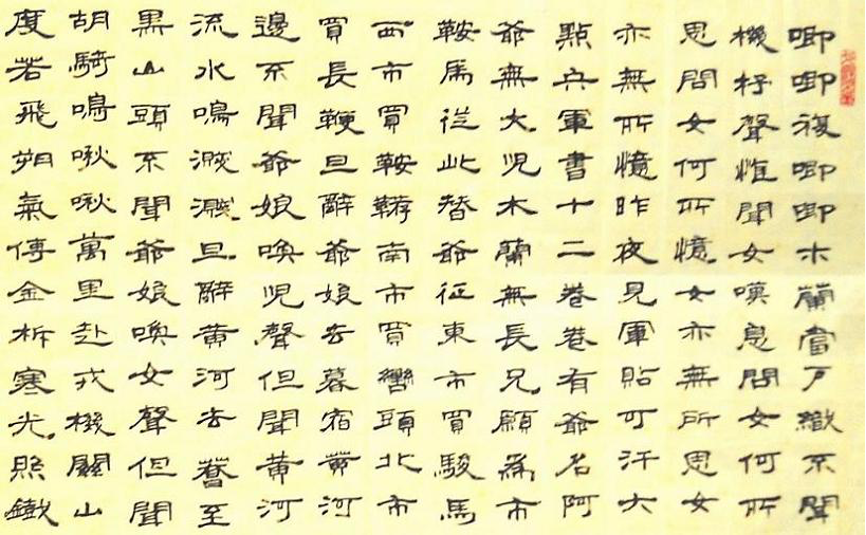 唧唧復唧唧木蘭當戶織不聞
機杼聲惟聞女嘆息問女何所
思問女何所憶女亦無所思女
亦無所憶昨夜見軍貼可汗大
點兵軍書十二卷卷有爺名阿
爺無大兒木蘭無長兄願為市
鞍馬從此替爺征東市買駿馬
西市買鞍韉南市買轡頭北市
買長鞭旦辭爺娘去暮宿黃河
邊不聞爺娘喚兒聲但聞黃河
流水鳴濺濺旦辭黃河去暮至
黑山頭不聞爺娘喚女聲但聞
胡騎鳴啾啾萬里赴戎機關山
度若飛朔氣傳金柝寒光照鐵